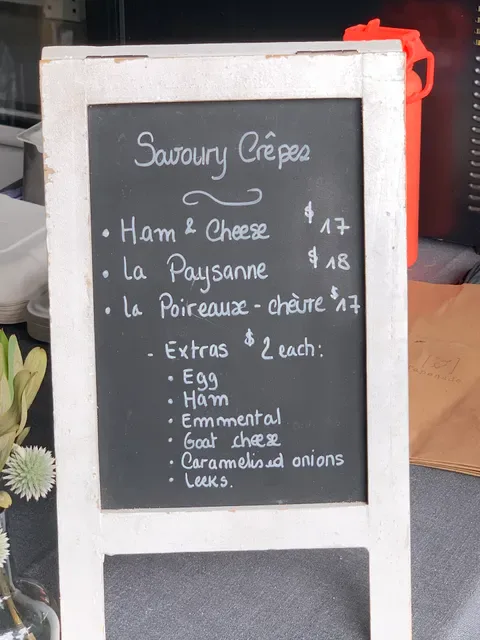 Savoury Crêpes
• Ham & Cheese $17
• La Paysanne $18
• La Poireaux - chèvre $17
- Extras $2 each:
• Egg
• Ham
• Emmental
• Goat cheese
• Caramelised onions
• Leeks.